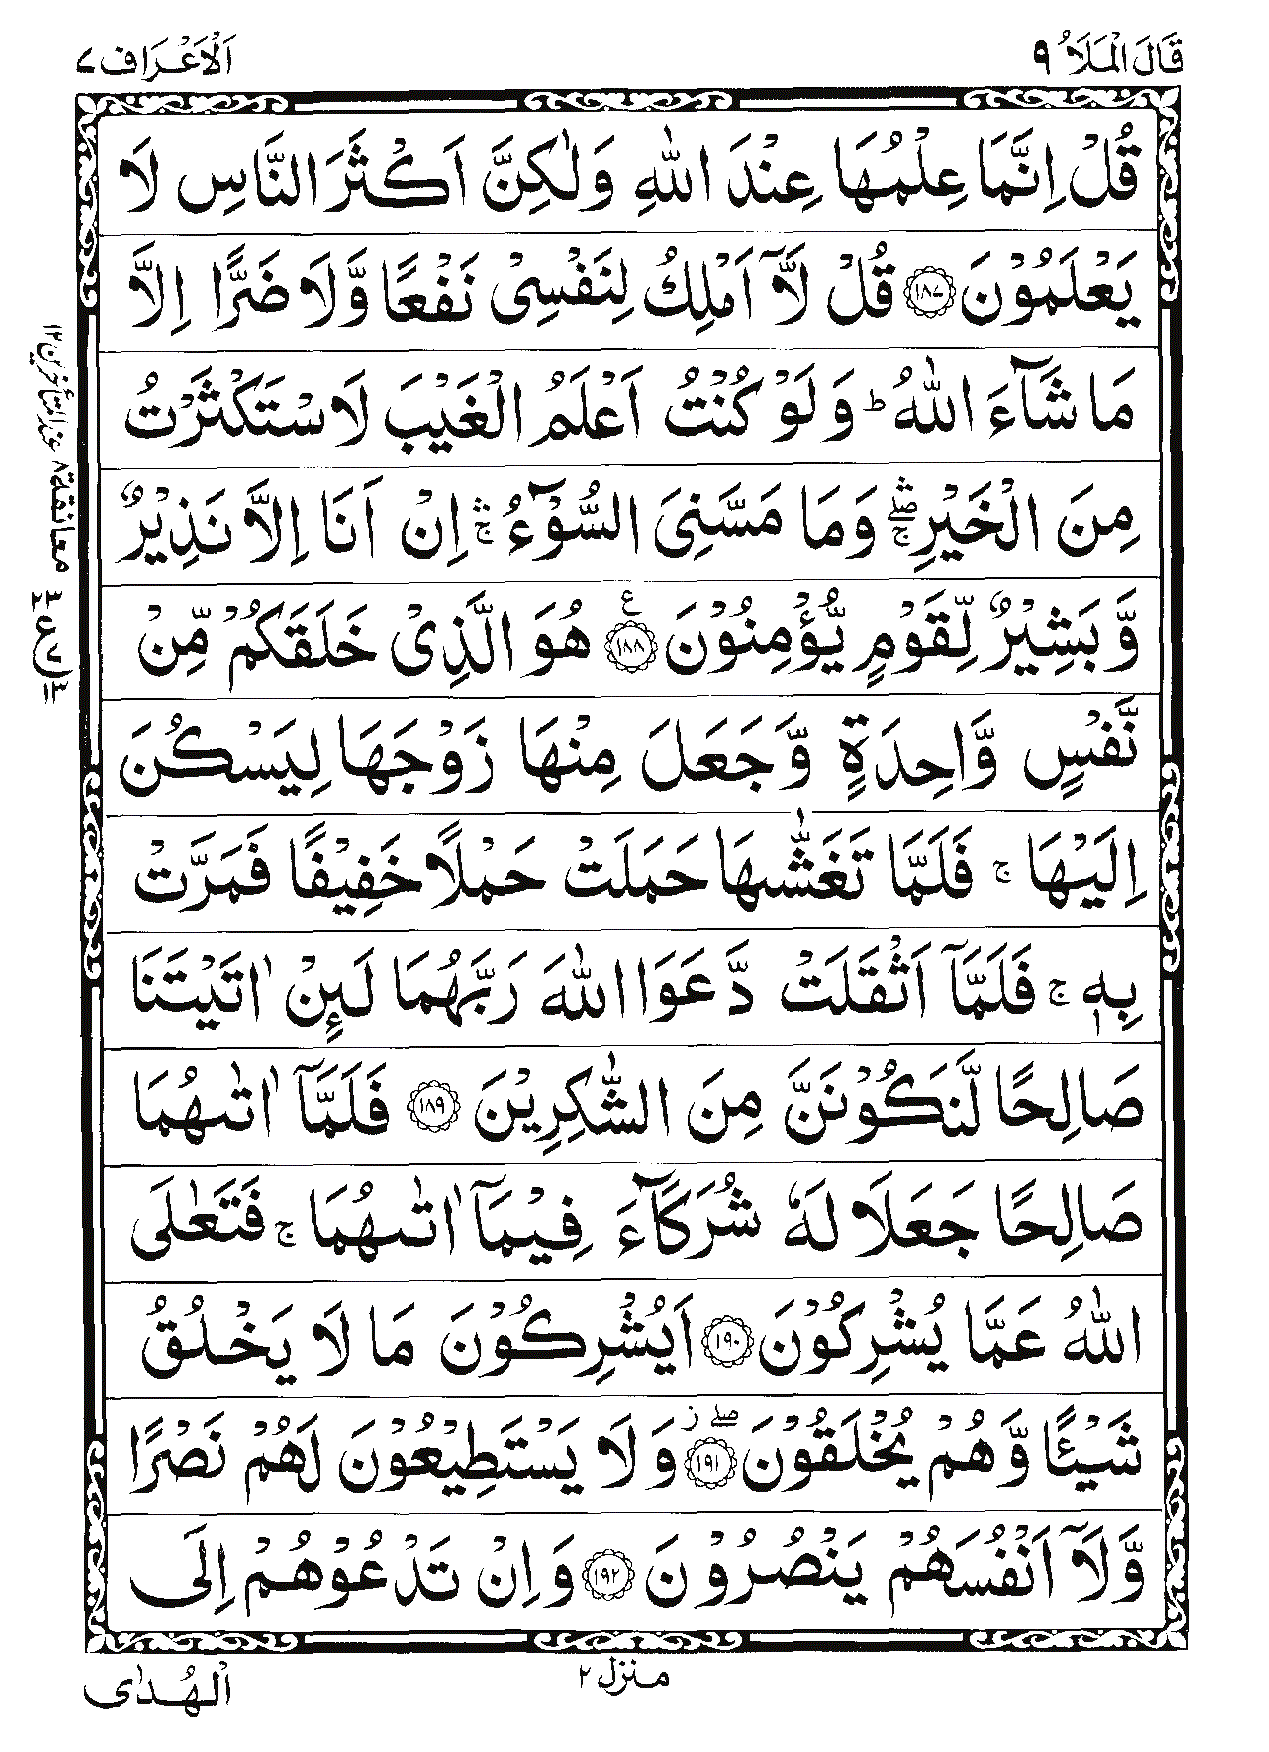 قَالَ الْمَلَاُ ٩
اَلْاَعْرَاف ٧
قُلْ اِنَّمَا عِلْمُهَا عِنْدَ اللّٰهِ وَلٰكِنَّ اَكْثَرَ النَّاسِ لَا
يَعْلَمُوْنَ ١٨٧ قُلْ لَّاۤ اَمْلِكُ لِنَفْسِىْ نَفْعًا وَّلَا ضَرًّا اِلَّا
مَا شَآءَ اللّٰهُ ؕ وَلَوْ كُنْتُ اَعْلَمُ الْغَيْبَ لَاسْتَكْثَرْتُ
مِنَ الْخَيْرِ ۛۖۚ وَمَا مَسَّنِىَ السُّوْٓءُ ۛۚ اِنْ اَنَا اِلَّا نَذِيْرٌ
وَّبَشِيْرٌ لِّقَوْمٍ يُّؤْمِنُوْنَ ١٨٨ ع هُوَ الَّذِىْ خَلَقَكُمْ مِّنْ
نَّفْسٍ وَّاحِدَةٍ وَّجَعَلَ مِنْهَا زَوْجَهَا لِيَسْكُنَ
اِلَيْهَا ۚ فَلَمَّا تَغَشّٰىهَا حَمَلَتْ حَمْلًا خَفِيْفًا فَمَرَّتْ
بِهٖ ۚ فَلَمَّاۤ اَثْقَلَتْ دَّعَوَا اللّٰهَ رَبَّهُمَا لَئِنْ اٰتَيْتَنَا
صَالِحًا لَّنَكُوْنَنَّ مِنَ الشّٰكِرِيْنَ ١٨٩ فَلَمَّاۤ اٰتٰىهُمَا
صَالِحًا جَعَلَا لَهٗ شُرَكَآءَ فِيْمَاۤ اٰتٰىهُمَا ۚ فَتَعٰلَى
اللّٰهُ عَمَّا يُشْرِكُوْنَ ١٩٠ اَيُشْرِكُوْنَ مَا لَا يَخْلُقُ
شَيْئًا وَّهُمْ يُخْلَقُوْنَ ١٩١ ۖ ز وَلَا يَسْتَطِيْعُوْنَ لَهُمْ نَصْرًا
وَّلَاۤ اَنْفُسَهُمْ يَنْصُرُوْنَ ١٩٢ وَاِنْ تَدْعُوْهُمْ اِلَى
معانقة ٨ عند المتأخرين ١٢
ع
منزل ٢
الْهُدٰى